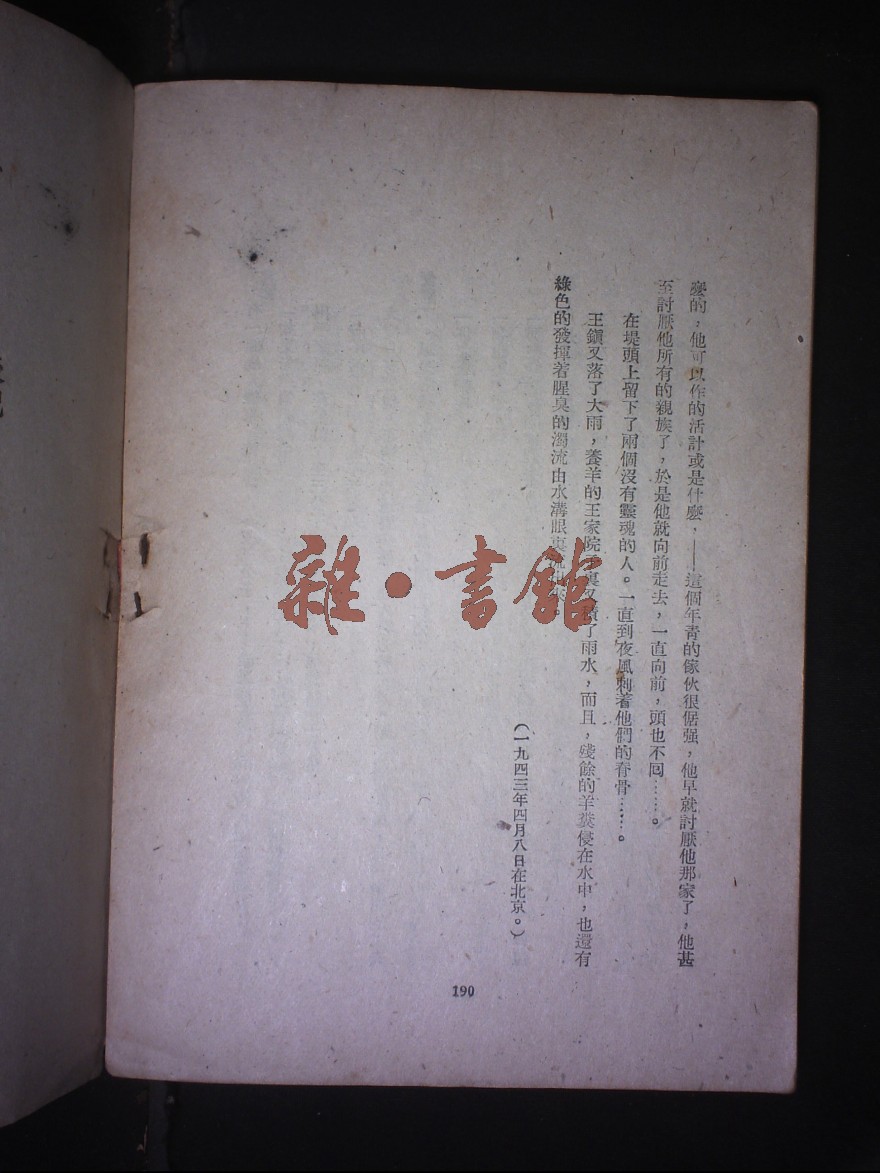 麽的，他可以作的活計或是什麽，——這個年青的傢伙很倔强，他早就討厭他那家了，他甚
至討厭他所有的親族了，於是他就向前走去，一直向前，頭也不囘……。
在堤頭上留下了兩個沒有靈魂的人。一直到夜風刺着他們的脊骨……。
王鎭又落了大雨，養羊的王家院裏又積了雨水，而且，殘餘的羊糞侵在水中，也還有
綠色的發揮着腥臭的濁流由水溝眼裏流出來
（一九四三年四月八日在北京。）
190
雜·書館
記